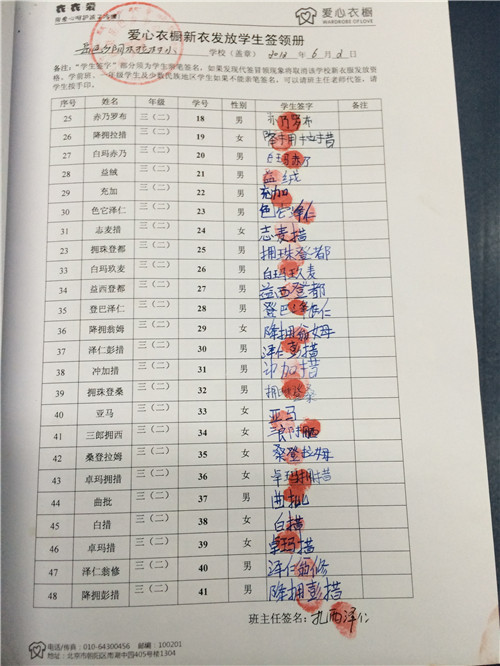 衣衣爱
爱心衣橱
WARDROBE OF LOVE
爱心衣橱新衣发放学生签领册
学校（盖章）2014年6月2日
备注：“学生签字”部分须为学生亲笔签名，如果发现代签冒领现象将取消该学校新衣服发放资
格，学前班、一年级学生及少数民族地区学生如果不能亲笔签名，可以请班主任老师代签，请
学生按手印。
序号 姓名 年级 学号 性别 学生签字 备注
25 赤乃罗布 三（二） 18 男 赤乃罗布
26 降拥拉措 三（二） 19 女 降拥拉措
27 白玛赤乃 三（二） 20 男 白玛赤乃
28 益绒 三（二） 21 男 益绒
29 充加 三（二） 22 男 充加
30 色它泽仁 三（二） 23 男 色它泽仁
31 志麦措 三（二） 24 女 志麦措
23 拥珠登都 三（二） 25 男 拥珠登都
33 白玛玖麦 三（二） 26 男 白玛玖麦
34 益西登都 三（二） 27 男 益西登都
35 登巴泽仁 三（二） 28 男 登巴泽仁
36 降拥翁姆 三（二） 29 女 降拥翁姆
37 泽仁彭措 三（二） 30 男 泽仁彭措
38 冲加措 三（二） 31 男 冲加措
39 拥珠登桑 三（二） 32 男 拥珠登桑
40 亚马 三（二） 33 女 亚马
41 三郎拥西 三（二） 34 女
42 桑登拉姆 三（二） 35 女 桑登拉姆
43 卓玛拥措 三（二） 36 女 卓玛拥措
44 曲批 三（二） 37 男 曲批
45 白措 三（二） 38 女 白措
46 卓玛措 三（二） 39 女 卓玛措
47 泽仁翁修 三（二） 40 男 泽仁翁修
48 降拥彭措 三（二） 41 男 降拥彭措
班主任签名：扎西泽仁
电话/传真：010-64300456 邮编：100201
地址：北京市朝阳区南湖中园405号楼1304